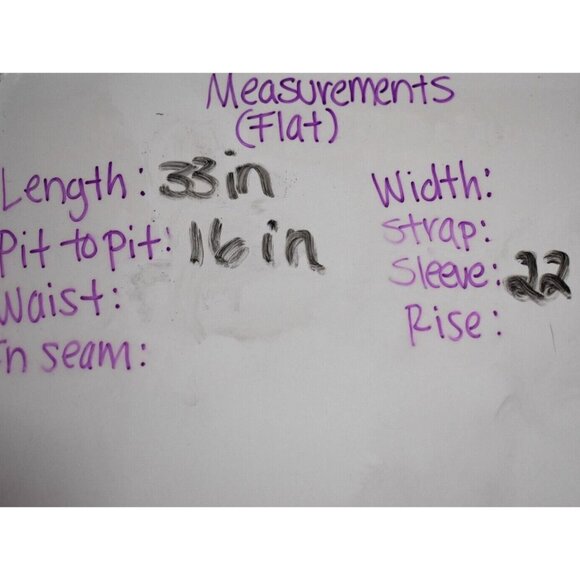 Measurements
(Flat)
Length: 33 in
Pit to pit: 16 in
Waist:
In seam:
Width:
Strap:
Sleeve: 22
Rise: